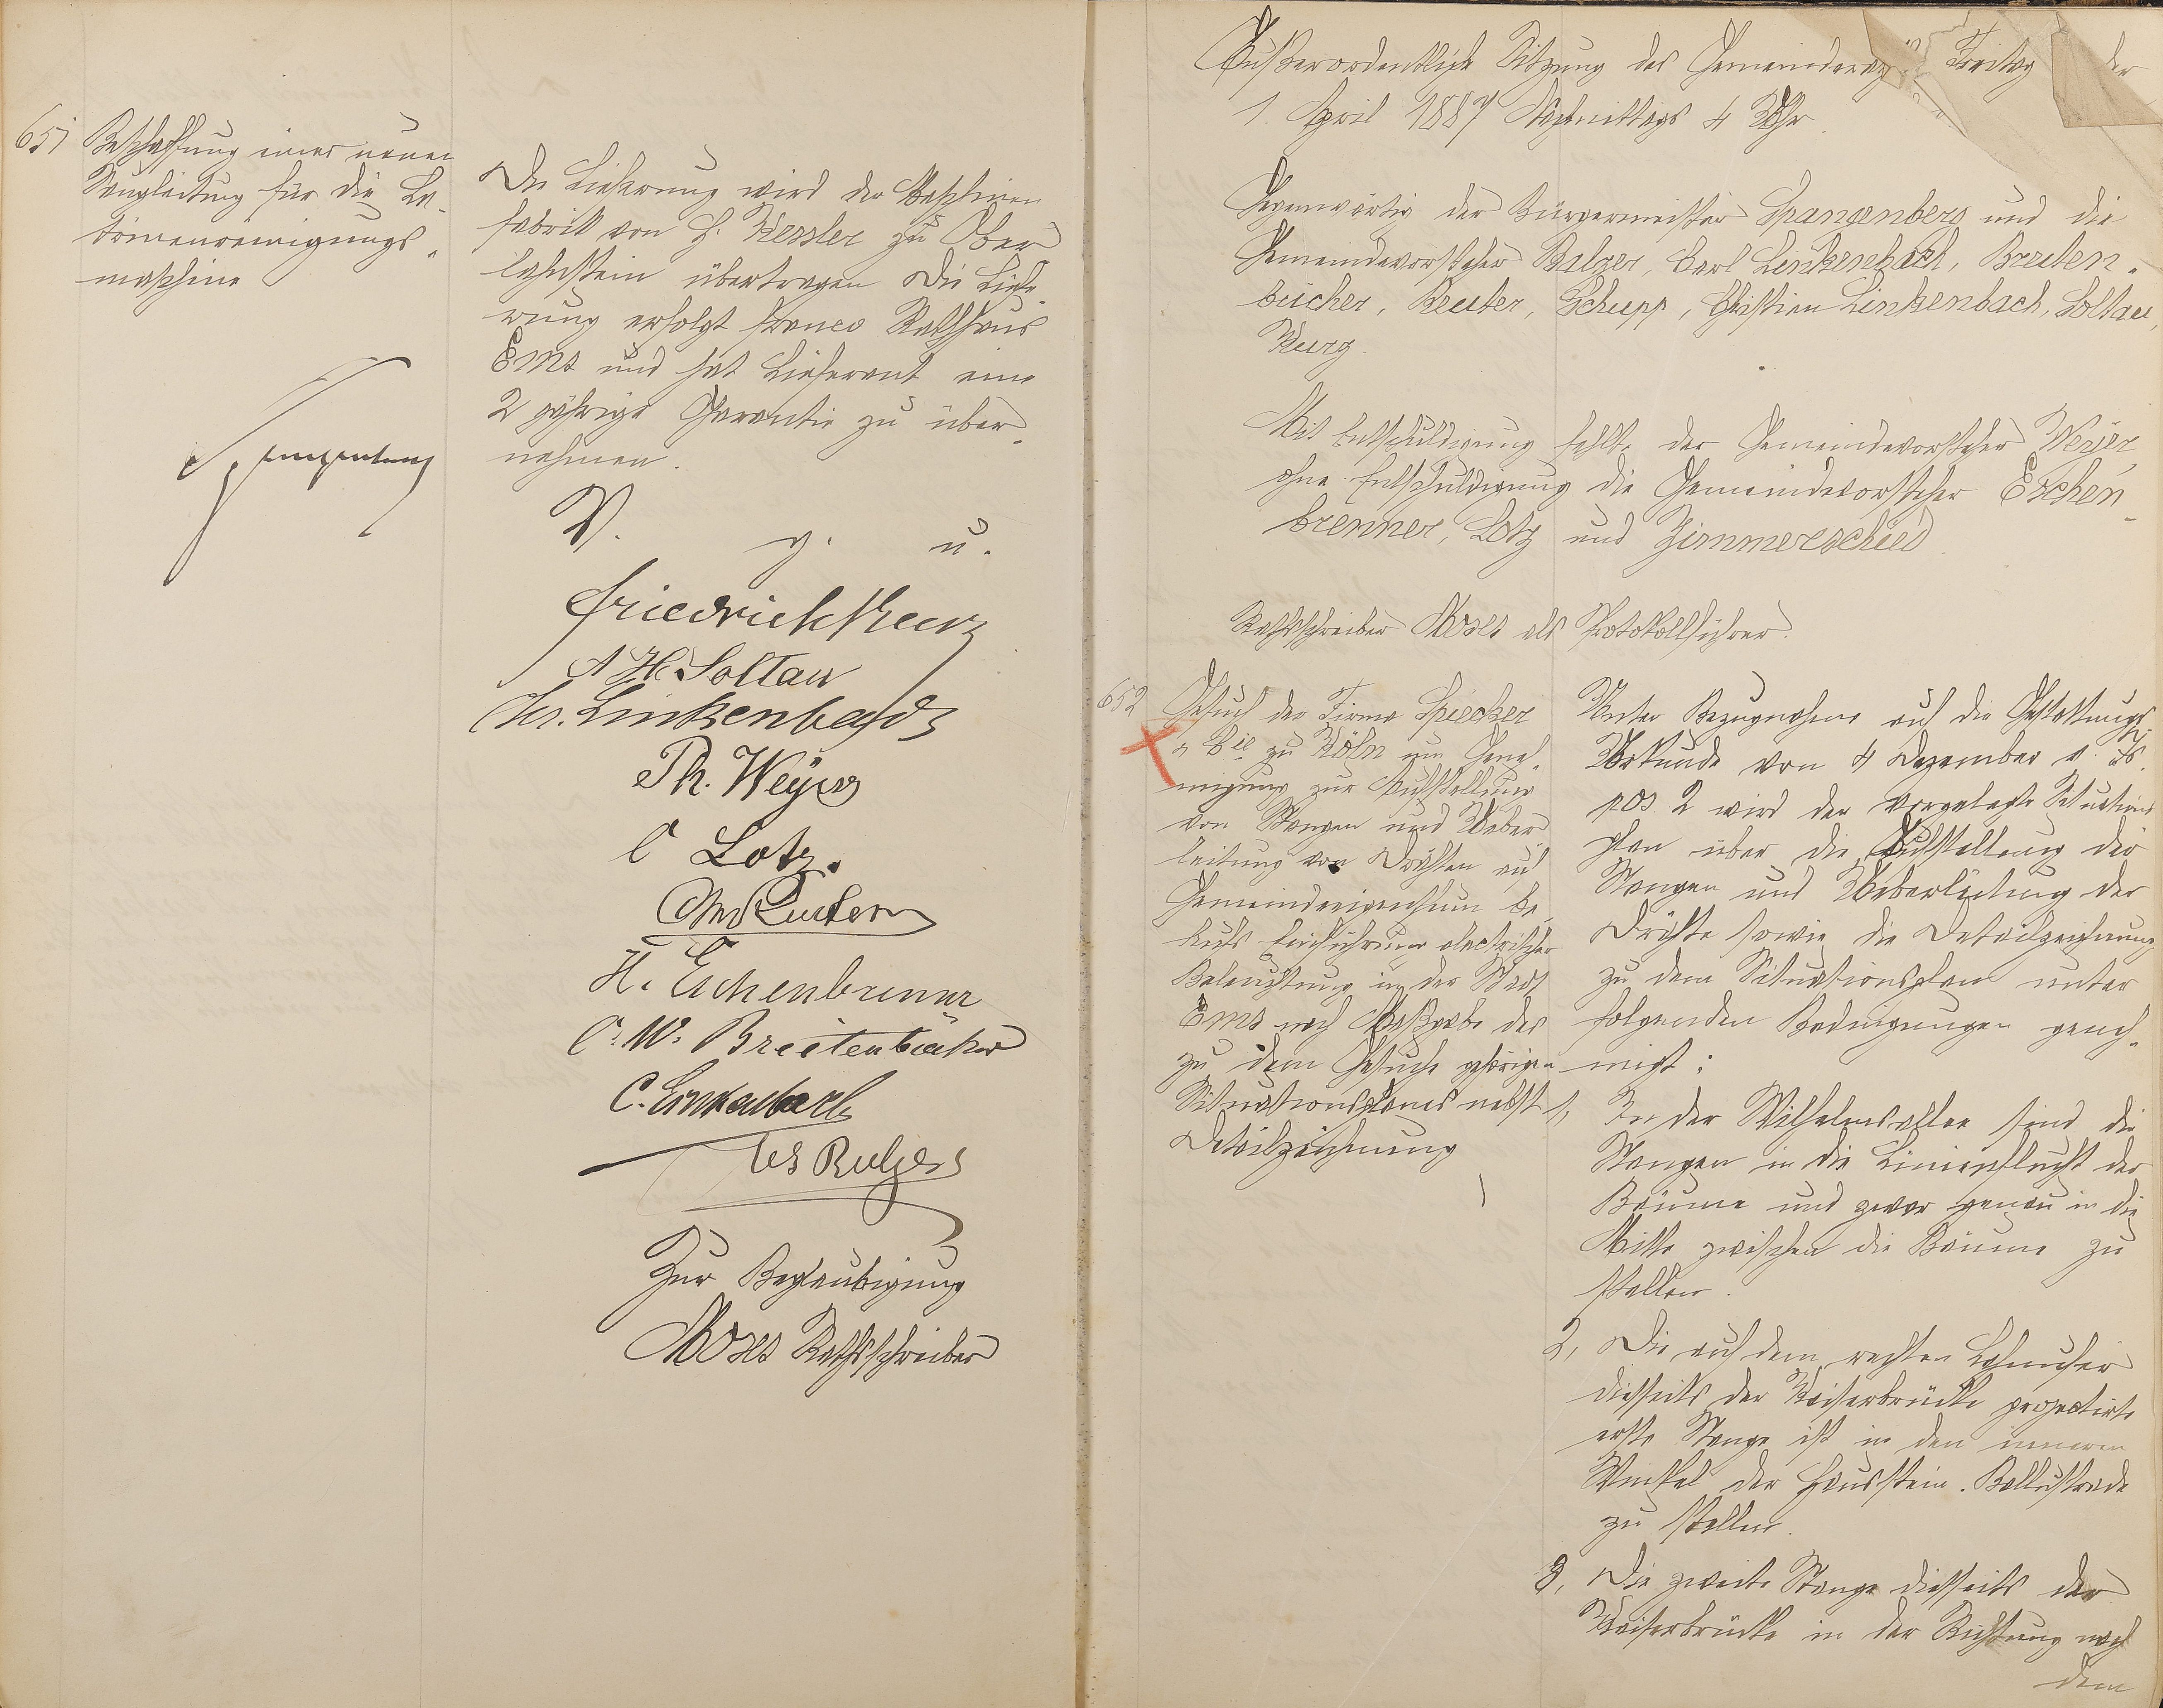 651
Beschaffung einer neuen
Saugleitung für die La-
trinenreinigungs-
maschine
Die Lieferung wird der Maschinen
fabrik von H. Kessler zu Ober
lahnstein übertragen Die Liefe
rung erfolgt franco Rathhaus
Ems und hat Lieferant eine
2 jährige Garantie zu über-
nehmen.
V. g. u.
Spangenberg
Friedrich Kurz
A H. Soltau
Chr. Linkenbach
Ph. Weyer
C Lotz.
Chr Reuter
H. Eschenbrenner
C. W. Breitenbücher
C. Linkenbach
Balzer
Zur Beglaubigung
Moses Rathsschreiber
Außerordentliche Sitzung des Freitag der
1. April 1887 Nachmittags 4 Uhr.
Gegenwärtig der Bürgermeister Spangenberg und die
Gemeindevorsteher Balzer, Carl Linkenbach, Breiten-
bücher, Reuter, Schupp, Christian Linkenbach, Soltau,
Kurz.
Mit Entschuldigung fehlt der Gemeindevorsteher Weyer,
ohne Entschuldigung die Gemeindevorsteher Eschen-
brenner, Lotz und Zimmerschied
Rathsschreiber Moses als Protokollführer.
652
Gesuch der Firma Spiecker
& Cie zu Köln um Geneh-
migung zur Aufstellung
von Stangen und Ueber
leitung von Drähten auf
Gemeindeeigenthum be
hufs Einführung electrischer
Beleuchtung in der Stadt
Ems nach Maßgabe des
zu dem Gesuche gehörigen
Situationsplanes nebst
Detailzeichnung
Unter Bezugnahme auf die Gestattungs-
Urkunde von 4 Dezember v. Js.
pos. 2 wird der vorgelegte Situations
plan über die Aufstellung der
Stangen und Ueberleitung der
Drähte sowie die Detailzeichnung
zu dem Situationsplan unter
folgenden Bedingungen geneh-
migt:
1, In der Wilhelmsallee sind die
Stangen in die Linienflucht der
Bäume und zwar genau in die
Mitte zwischen die Bäume zu
stellen.
2, Die auf dem rechten Lahnufer
diesseits der Kaiserbrücke projectirte
erste Stange ist in den inneren
Winkel der Haustein-Ballustrade
zu stellen.
3, Die zweite Stange diesseits der
Kaiserbrücke in der Richtung nach
dem